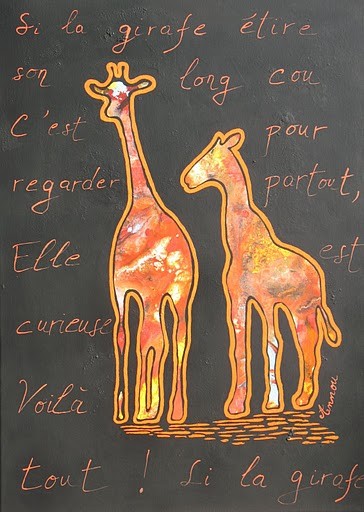 Si la girafe étire
son long cou
C'est pour
regarder partout,
Elle est
curieuse
Voilà
tout ! Si la girafe